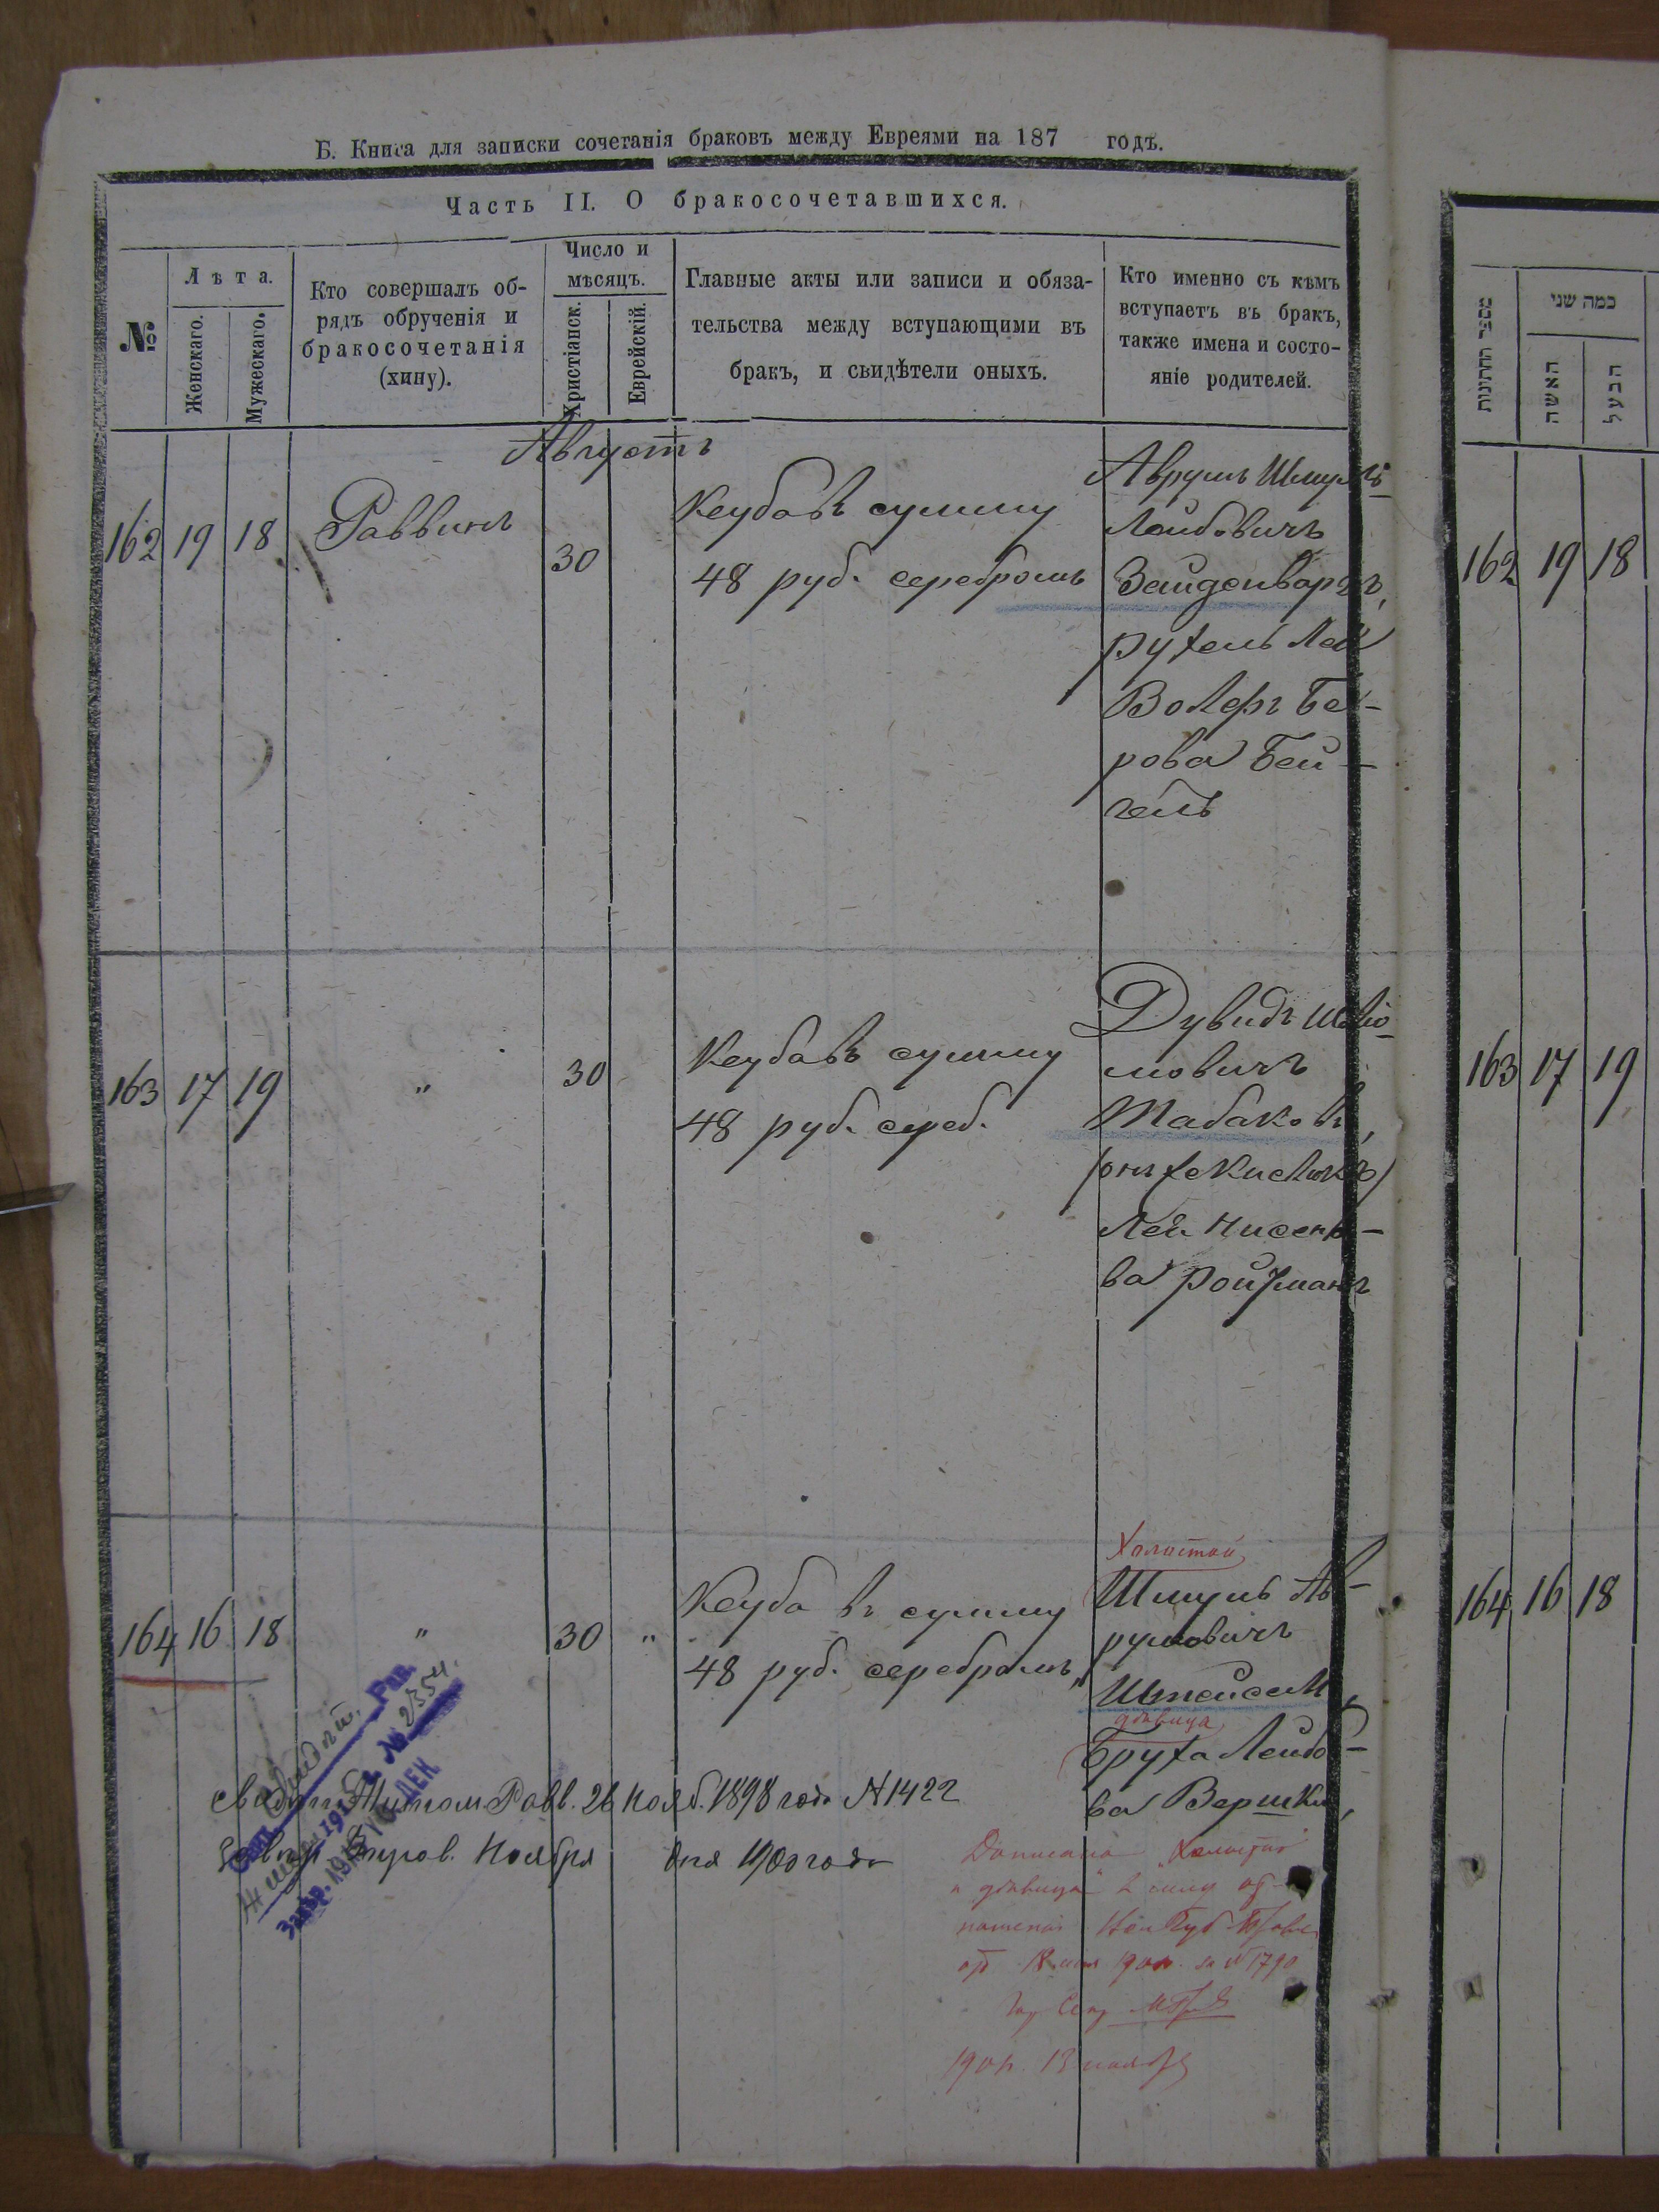 Б. Книга для записки сочетанія браковъ между Евреями на 187 годъ.
Часть II. О бракосочетавшихся.
№
Лѣта.
Женскаго.
Мужескаго.
Кто совершалъ об-
рядъ обрученія и
бракосочетанія
(хипу).
Число и
мѣсяцъ.
Христіанск.
Еврейскій.
Главные акты или записи и обяза-
тельства между вступающими въ
бракъ, и свидѣтели оныхъ.
Кто именно съ кѣмъ
вступаетъ въ бракъ,
также имена и состо-
яніе родителей.
Августъ
162 19 18 Раввинъ 30
Ксуба въ сумму
48 руб. серебромъ
Аврумъ Шмуль
Лейбовичъ
Зайденваргъ,
Рухель Лея
Вольфъ Бе-
рова Бей-
гель
163 17 19 " 30
Ксуба въ сумму
48 руб. сереб.
Дувидъ Шлio
мовичъ
Табаковъ,
Лея Нисено-
ва Ройзманъ
164 16 18 " 30 "
Ксуба въ сумму
48 руб. серебромъ
Холостой
Шмуль Ав-
румовичъ
Штейсель,
дѣвица
Бруха Лейбо-
ва Вершки,
Свидѣт. Житом. Равв. 26 Нояб. 1898 года N 1422
Ноября дня 1900 года
Свид. Рав.
№ 2354.
ДЕК
Дописано "Холостой"
и дѣвица" в силу
за № 1790
190
מספר החתונות
כמה שני
האשה
הבעל
162 19 18
163 17 19
164 16 18